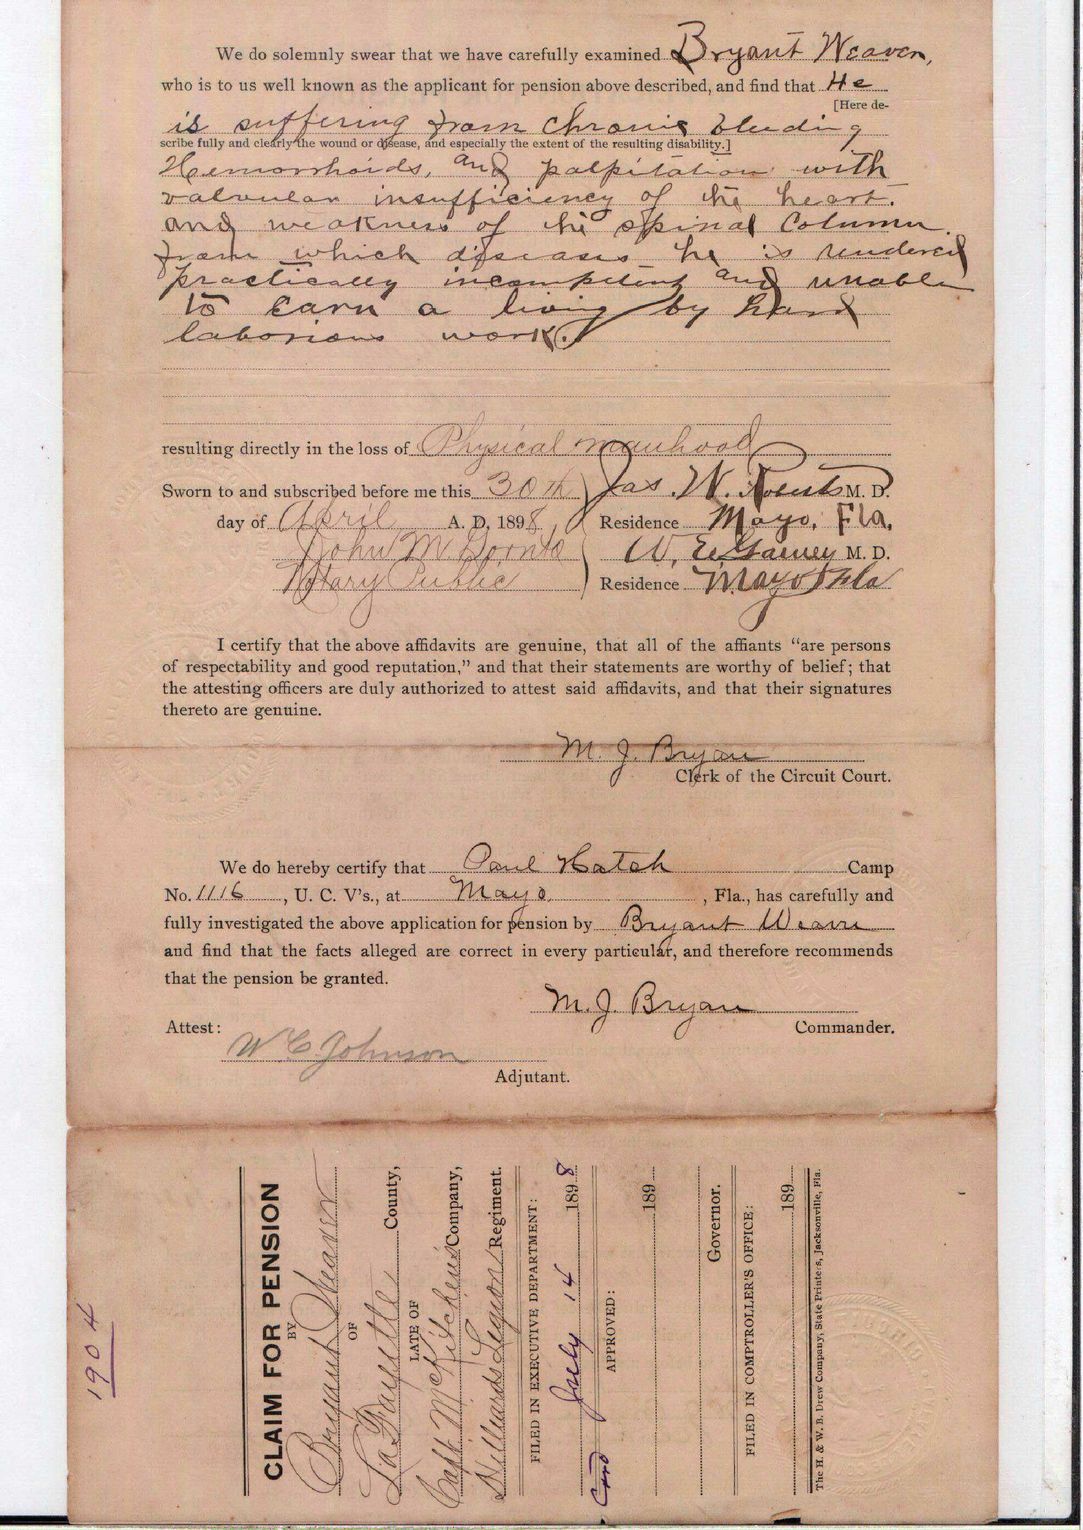 We do solemnly swear that we have carefully examined Bryant Weaver,
who is to us well known as the applicant for pension above described, and find that He
[Here de-
is suffering from Chronic bleeding
scribe fully and clearly the wound or disease, and especially the extent of the resulting disability.]
Hemorrhoids, and palpitation with
valvular insufficiency of the heart.
and weakness of the spinal Column.
from which diseases he is rendered
practically incompetent and unable
to earn a living by hard
laborious work.
resulting directly in the loss of Physical manhood
Sworn to and subscribed before me this 30th Jas. W. M. D.
day of April A. D. 1898, Residence Mayo, Fla.
John M W. E. M. D.
Notary Public Residence Mayo Fla
I certify that the above affidavits are genuine, that all of the affiants “are persons
of respectability and good reputation,” and that their statements are worthy of belief; that
the attesting officers are duly authorized to attest said affidavits, and that their signatures
thereto are genuine.
M. J. Bryan
Clerk of the Circuit Court.
We do hereby certify that Paul Hatch Camp
No. 1116, U. C. V's., at Mayo, Fla., has carefully and
fully investigated the above application for pension by Bryant Weaver
and find that the facts alleged are correct in every particular, and therefore recommends
that the pension be granted.
M. J. Bryan
Attest: Commander.
W C Johnson
Adjutant.
1904
CLAIM FOR PENSION
BY
Bryant Weaver
OF
La Fayette County,
LATE OF
Capt McKitchens Company,
Hilliards Legion Regiment.
FILED IN EXECUTIVE DEPARTMENT:
July 14 1898
APPROVED:
189
Governor.
FILED IN COMPTROLLER'S OFFICE:
189
The H. & W. B. Drew Company, State Printers, Jacksonville, Fla.